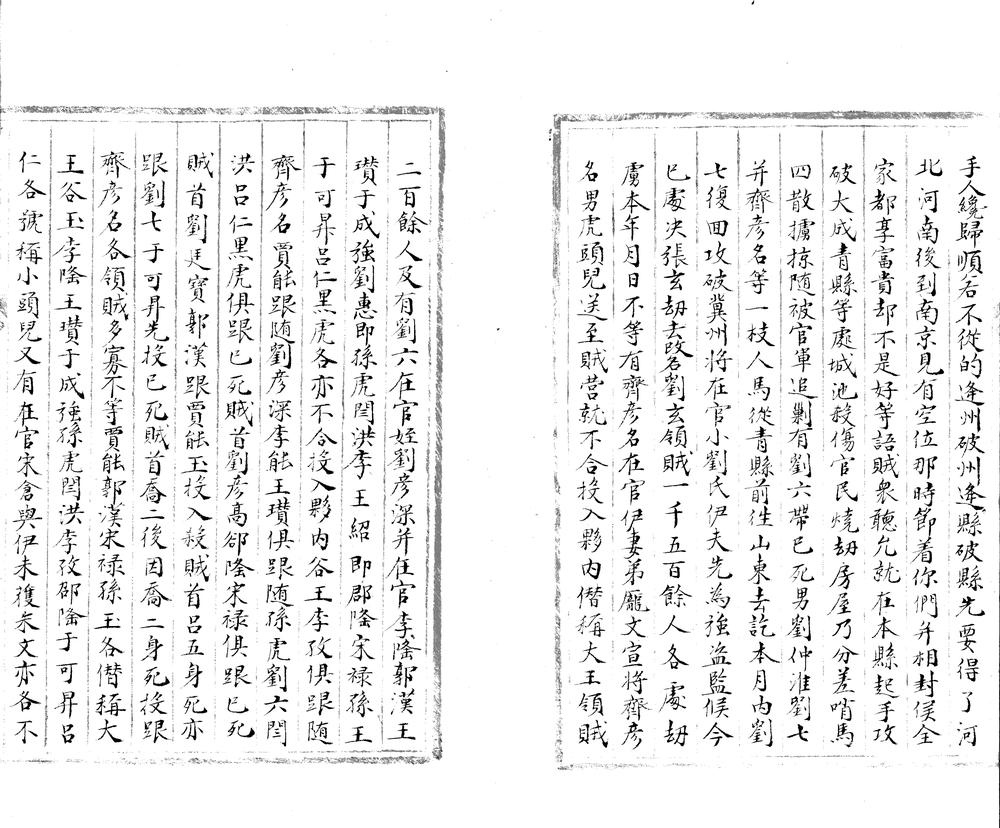 手人纔歸順若不從的逢州破州逢縣破縣先要得了河
北河南後到南京見有空位那時節着你們并相封侯全
家都享富貴却不是好等語賊衆聽允就在本縣起手攻
破大成青縣等處城池殺傷官民燒劫房屋乃分差哨馬
四散擄掠随被官軍追剿有劉六帶已死男劉仲淮劉七
并齊彥名等一枝人馬從青縣前徃山東去訖本月内劉
七復回攻破冀州將在官小劉氏伊夫先為強盜監候今
已處决張玄劫去改名劉玄領賊一千五百餘人各處劫
虜本年月日不等有齊彥名在官伊妻弟龎文宣將齊彥
名男虎頭兒送至賊營就不合投入夥内僭稱大王領賊
二百餘人及有劉六在官姪劉彥深并在官李隆郭漢王
瓚于成強劉惠即孫虎閆洪李王紹即郡隆宋禄孫王
于可昇吕仁黒虎各亦不合投入夥内谷王李孜俱跟随
齊彥名賈能跟随劉彥深李能王瓚俱跟随孫虎劉六閆
洪吕仁黒虎俱跟已死賊首劉彥高郤隆宋禄俱跟已死
賊首劉廷寳郭漢跟賈能玉投入殺賊首吕五身死亦
跟劉七于可昇先投已死賊首喬二後因喬二身死投跟
齊彥名各領賊多寡不等賈能郭漢宋禄孫玉各僭稱大
王谷玉李隆王瓚于成強孫虎閆洪李孜邵隆于可昇吕
仁各號稱小頭兒又有在官宋倉與伊未獲朱文亦各不